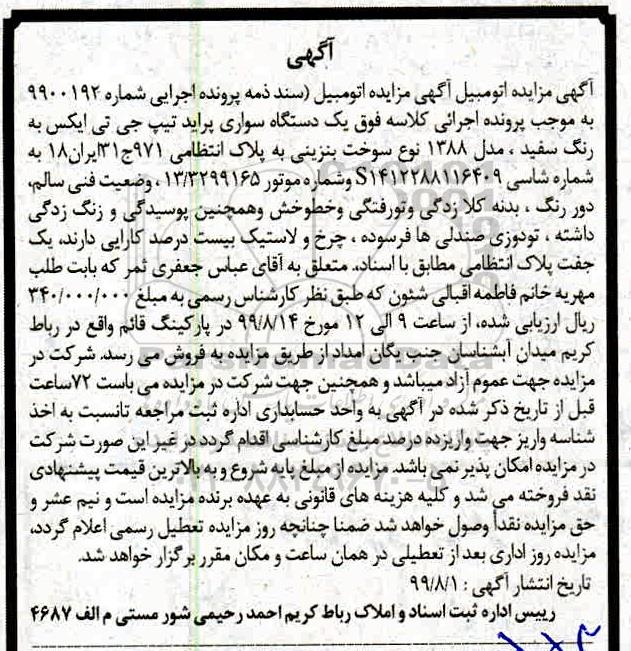 آگهی
آگهی مزایده اتومبیل آگهی مزایده اتومبیل (سند ذمه پرونده اجرایی شماره ۹۹۰۰۱۹۲
به موجب پرونده اجرائی کلاسه فوق یک دستگاه سواری پراید تیپ جی تی ایکس به
رنگ سفید ، مدل ۱۳۸۸ نوع سوخت بنزینی به پلاک انتظامی ۹۷۱ج۳۱ایران۱۸ به
شماره شاسی S۱۴۱۲۲۸۸۱۱۶۴۰۹ وشماره موتور ۱۳/۳۲۹۹۱۶۵ ، وضعیت فنی سالم،
دور رنگ ، بدنه کلا زدگی وتورفتگی وخطوخش وهمچنین پوسیدگی و زنگ زدگی
داشته ، تودوزی صندلی ها فرسوده ، چرخ و لاستیک بیست درصد کارایی دارند، یک
جفت پلاک انتظامی مطابق با اسناد، متعلق به آقای عباس جعفری ثمر که بابت طلب
مهریه خانم فاطمه اقبالی شئون که طبق نظر کارشناس رسمی به مبلغ ۳۴۰/۰۰۰/۰۰۰
ریال ارزیابی شده، از ساعت ۹ الی ۱۲ مورخ ۹۹/۸/۱۴ در پارکینگ قائم واقع در رباط
کریم میدان آبشناسان جنب یگان امداد از طریق مزایده به فروش می رسد. شرکت در
مزایده جهت عموم آزاد میباشد و همچنین جهت شرکت در مزایده می باست ۷۲ساعت
قبل از تاریخ ذکر شده در آگهی به واحد حسابداری اداره ثبت مراجعه تانسبت به اخذ
شناسه واریز جهت واریزده درصد مبلغ کارشناسی اقدام گردد در غیر این صورت شرکت
در مزایده امکان پذیر نمی باشد. مزایده از مبلغ پایه شروع و به بالاترین قیمت پیشنهادی
نقد فروخته می شد و کلیه هزینه های قانونی به عهده برنده مزایده است و نیم عشر و
حق مزایده نقداً وصول خواهد شد ضمنا چنانچه روز مزایده تعطیل رسمی اعلام گردد،
مزایده روز اداری بعد از تعطیلی در همان ساعت و مکان مقرر برگزار خواهد شد.
تاریخ انتشار آگهی : ۹۹/۸/۱
رییس اداره ثبت اسناد و املاک رباط کریم احمد رحیمی شور مستی م الف ۴۶۸۷